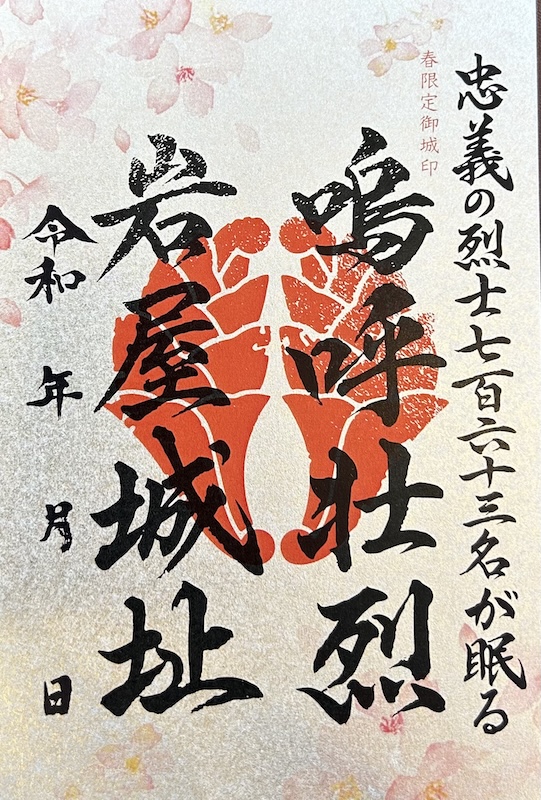 忠義の烈士七百六十三名が眠る
春限定御城印
嗚呼壮烈
岩屋城址
令和 年 月 日